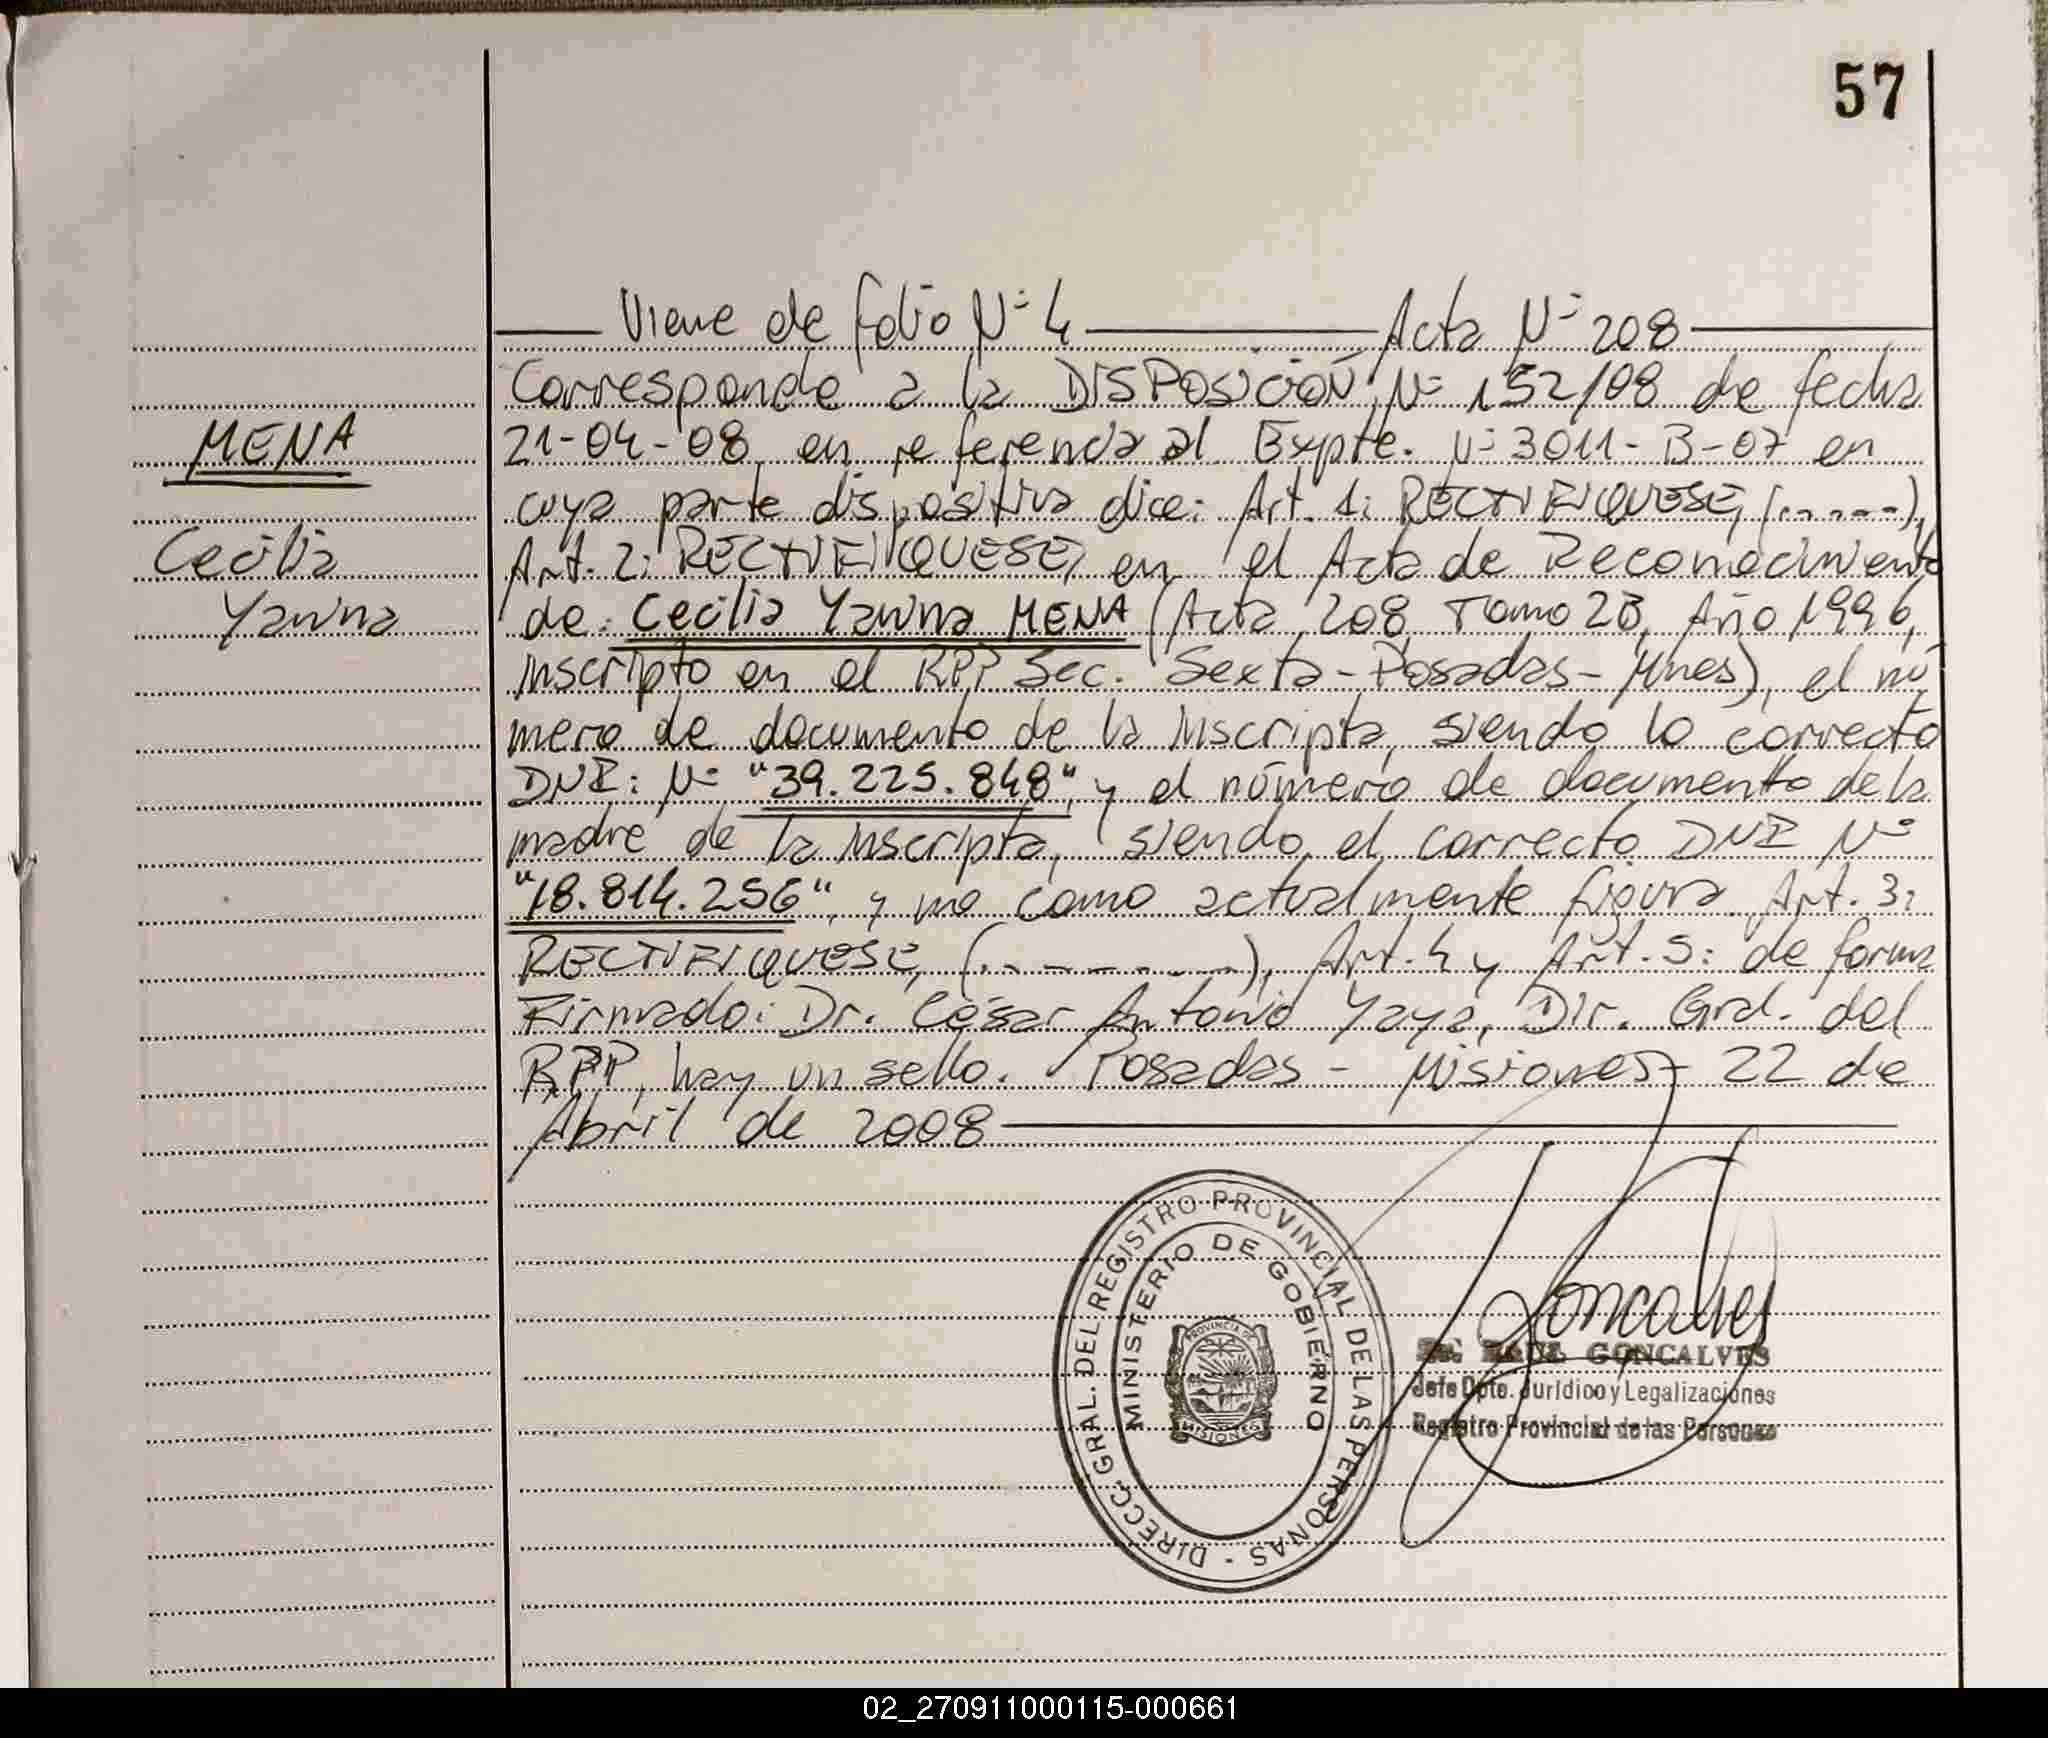 57
Viene de folio Nº 4 Acta Nº 208
Corresponde a la DISPOSICIÓN, Nº 152/08 de fecha
MENA
21-04-08, en referencia al Expte. Nº 3011-B-07 en
cuya parte dispositiva dice: Art. 1: RECTIFIQUESE, (......),
Cecilia
Art. 2: RECTIFIQUESE, en el Acta de Reconocimiento
Yanina
de: Cecilia Yanina MENA (Acta 208, Tomo 2B, Año 1996,
inscripto en el RPP Sec. Sexta-Posadas-Mnes), el nú
mero de documento de la inscripta, siendo lo correcto
DNI: Nº "39.225.848", y el número de documento de la
madre de la inscripta, siendo el correcto DNI Nº
"18.814.256", y no como actualmente figura. Art. 3:
RECTIFIQUESE, (.........), Art. 4 y Art. 5: de forma
Firmado: Dr. César Antonio Yaya, Dir. Gral. del
RPP, hay un sello. Posadas - Misiones - 22 de
Abril de 2008
DIRECC. GRAL. DEL REGISTRO PROVINCIAL DE LAS PERSONAS -
MINISTERIO DE GOBIERNO
PROVINCIA DE
MISIONES
Goncalves
GONCALVES
Jefe Dpto. Jurídico y Legalizaciones
Registro Provincial de las Personas
02_270911000115-000661